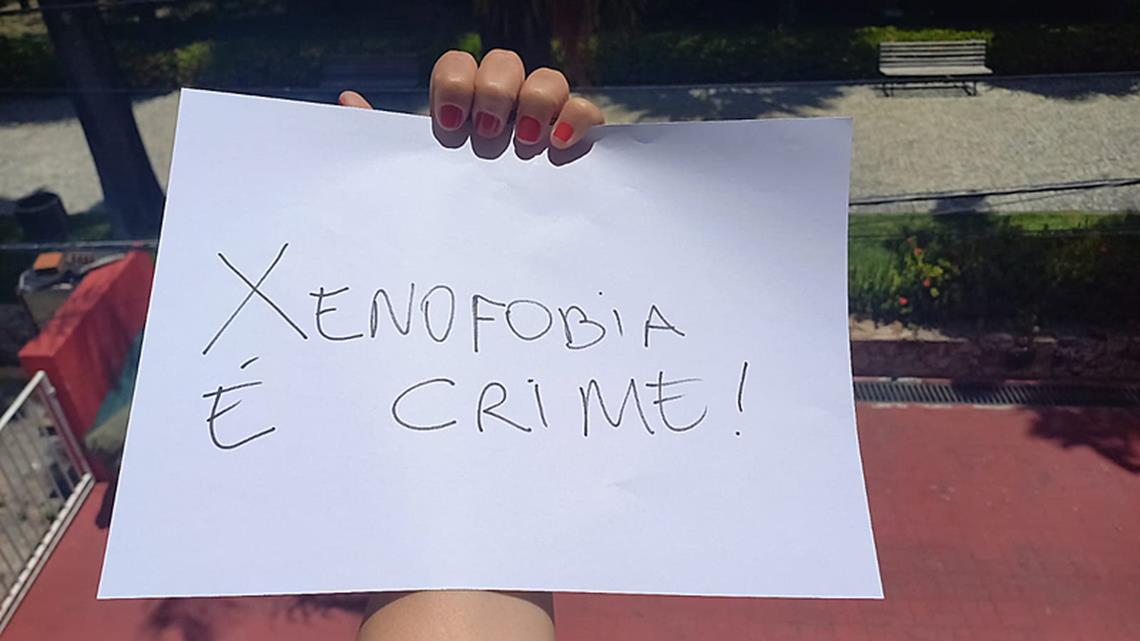 XENOFOBiA
É CRiME!